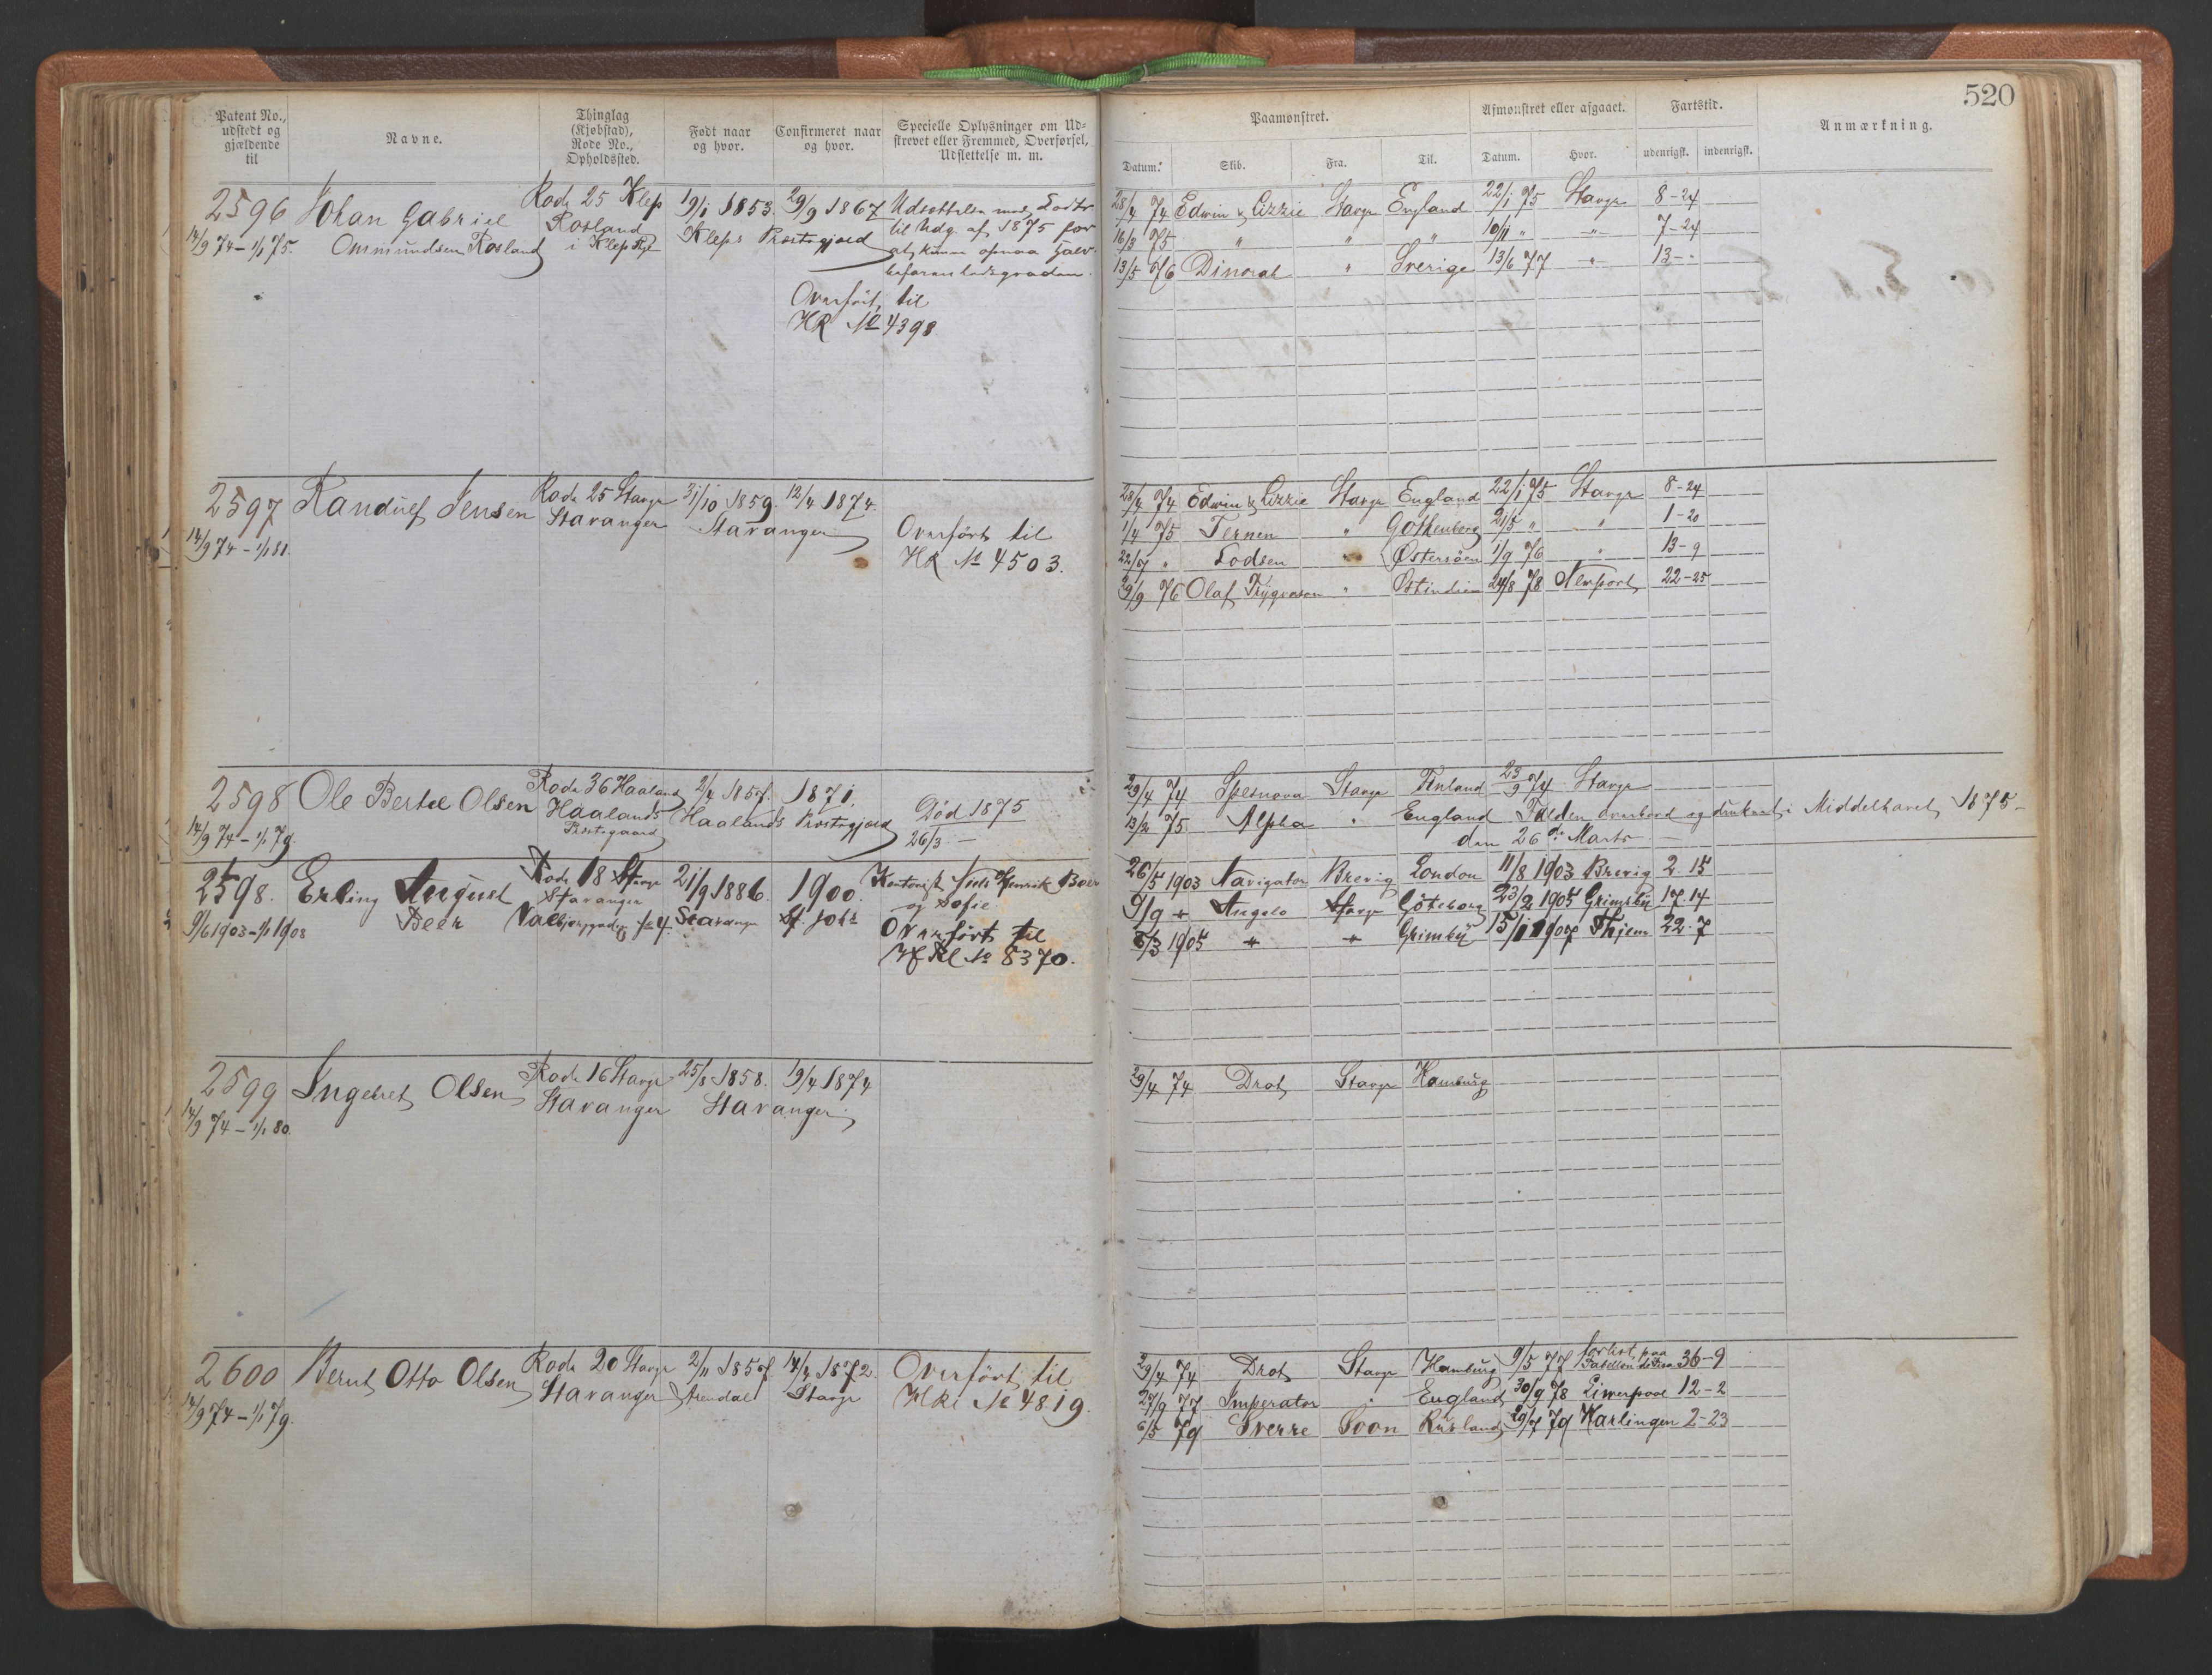 520
Patent No., udstedt og gjældende til
Navne.
Thinglag (Kjøbstad), Rode No., Opholdssted.
Født naar og hvor.
Confirmeret naar og hvor.
Specielle Oplysninger om Udskrevet eller Fremmed, Overførsel, Udslettelse m. m.
Paamønstret.
Datum.
Skib.
Fra.
Til.
Afmønstret eller afgaaet.
Datum.
Hvor.
Fartstid.
udenrigsk.
indenrigsk.
Anmærkning.
2596 Johan Gabriel Rode 25 Klep 19/1 1853. 29/9 1867 Udsættelse med Lodtr
14/9 74 - 1/1 75. Ommundsen Rosland Rosland Kleps Prestegjæld til Udg. af 1875 for
i Klep Pgl at kunne opnaa
Overført til
HR No 4398
28/4 74 Edwin & Lizzie Stavgr England 22/1 75 Stavgr 8-24
16/3 75 " " " 10/11 " " 7-24
13/5 76 Dinorah " Sverige 13/6 77 " 13--
2597 Randulf Jensen Rode 25 Stavgr 31/10 1859. 12/4 1874.
14/9 74 - 1/1 81. Stavanger Stavanger
Overført til
HR No 4503.
28/4 74 Edwin & Lizzie Stavgr England 22/1 75 Stavgr 8-24
1/4 75 Ternen " Gothenborg 21/5 " " 1-20
22/7 " Lodsen " Østersöen 1/9 76 " 13-9
29/9 76 Olaf Trygvason " Ostindien 24/8 78 Newport 22-25
2598 Ole Bertel Olsen Rode 36 Haaland 2/4 1857. 1871. Død 1875
14/9 74 - 1/1 79. Haalands Prestegaard Haalands Prestegjæld 26/3 -
29/4 74 Spesnova Stavgr Finland 23/9 74 Stavgr
13/2 75 Alpha " England Falden overbord og druknet i Middelhavet 1875-
den 26de Marts
2598. Erling August Rode 18 Stavgr 21/9 1886. 1900. Kontorist Niels Henrik Beer
9/6 1903 - 1/1 1908 Beer Stavanger Stavanger St. Johs og Sofie
Overført til
HRl No 8370.
26/5 1903 Navigator Brevig London 11/8 1903 Brevig 2. 15
9/9 " Angelo Stavgr Göteborg 23/2 1905 Grimsby 17. 14
6/3 1905 " " Grimsby 15/1 1907 Thjem 22. 7
2599 Ingebret Olsen Rode 16 Stavgr 25/8 1858. 19/4 1874
14/9 74 - 1/1 80. Stavanger Stavanger
29/4 74 Drot Stavgr Hamburg
2600 Bernt Otto Olsen Rode 20 Stavgr 2/11 1857. 14/4 1872. Overført til
14/9 74 - 1/1 79. Stavanger Arendal Stavgr HRl No 4819.
29/4 74 Drot Stavgr Hamburg 9/5 77 forlist paa 36-9
27/9 77 Imperator " England 30/9 78 Liverpool 12-2
6/5 79 Sverre Soon Rusland 29/7 79 Harlingen 2-23